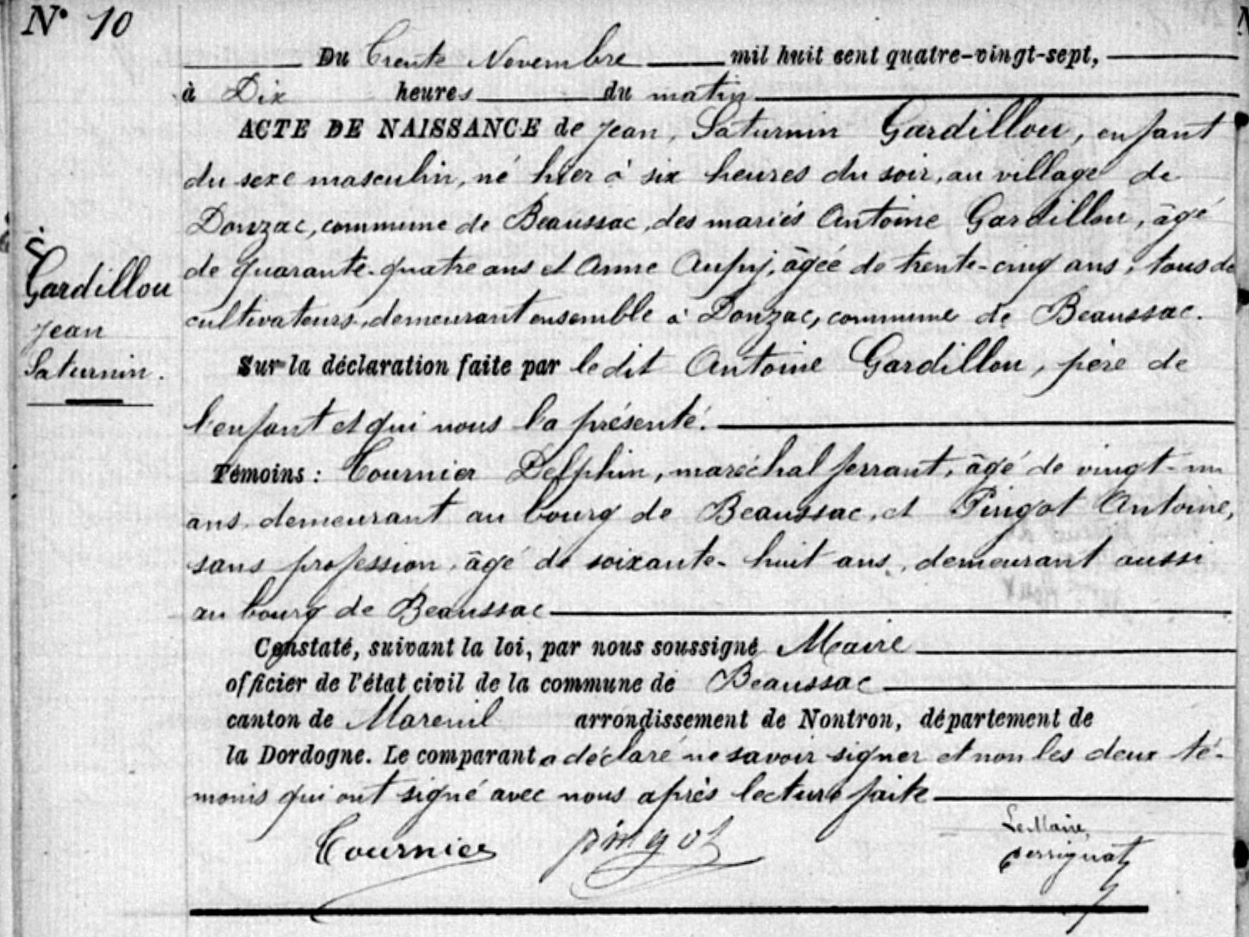 N° 10
Du Trente Novembre mil huit cent quatre-vingt-sept,
à Dix heures du matin
ACTE DE NAISSANCE de Jean, Saturnin Gardillou, enfant
du sexe masculin, né hier à six heures du soir, au village de
Donzac, commune de Beaussac, des mariés Antoine Gardillou, âgé
de quarante-quatre ans et Anne Aupy, âgée de trente-cinq ans, tous de
cultivateurs, demeurant ensemble à Donzac, commune de Beaussac.
Gardillou
Jean
Saturnin.
Sur la déclaration faite par ledit Antoine Gardillou, père de
l'enfant et qui nous l'a présenté.
Témoins : Tournier Delphin, maréchal ferrant, âgé de vingt-un
ans, demeurant au bourg de Beaussac, et Pingot Antoine,
sans profession, âgé de soixante-huit ans, demeurant aussi
au bourg de Beaussac
Constaté, suivant la loi, par nous soussigné Maire
officier de l'état civil de la commune de Beaussac
canton de Mareuil arrondissement de Nontron, département de
la Dordogne. Le comparant a déclaré ne savoir signer et non les deux té-
moins qui ont signé avec nous après lecture faite
Tournier pingot
Le Maire,